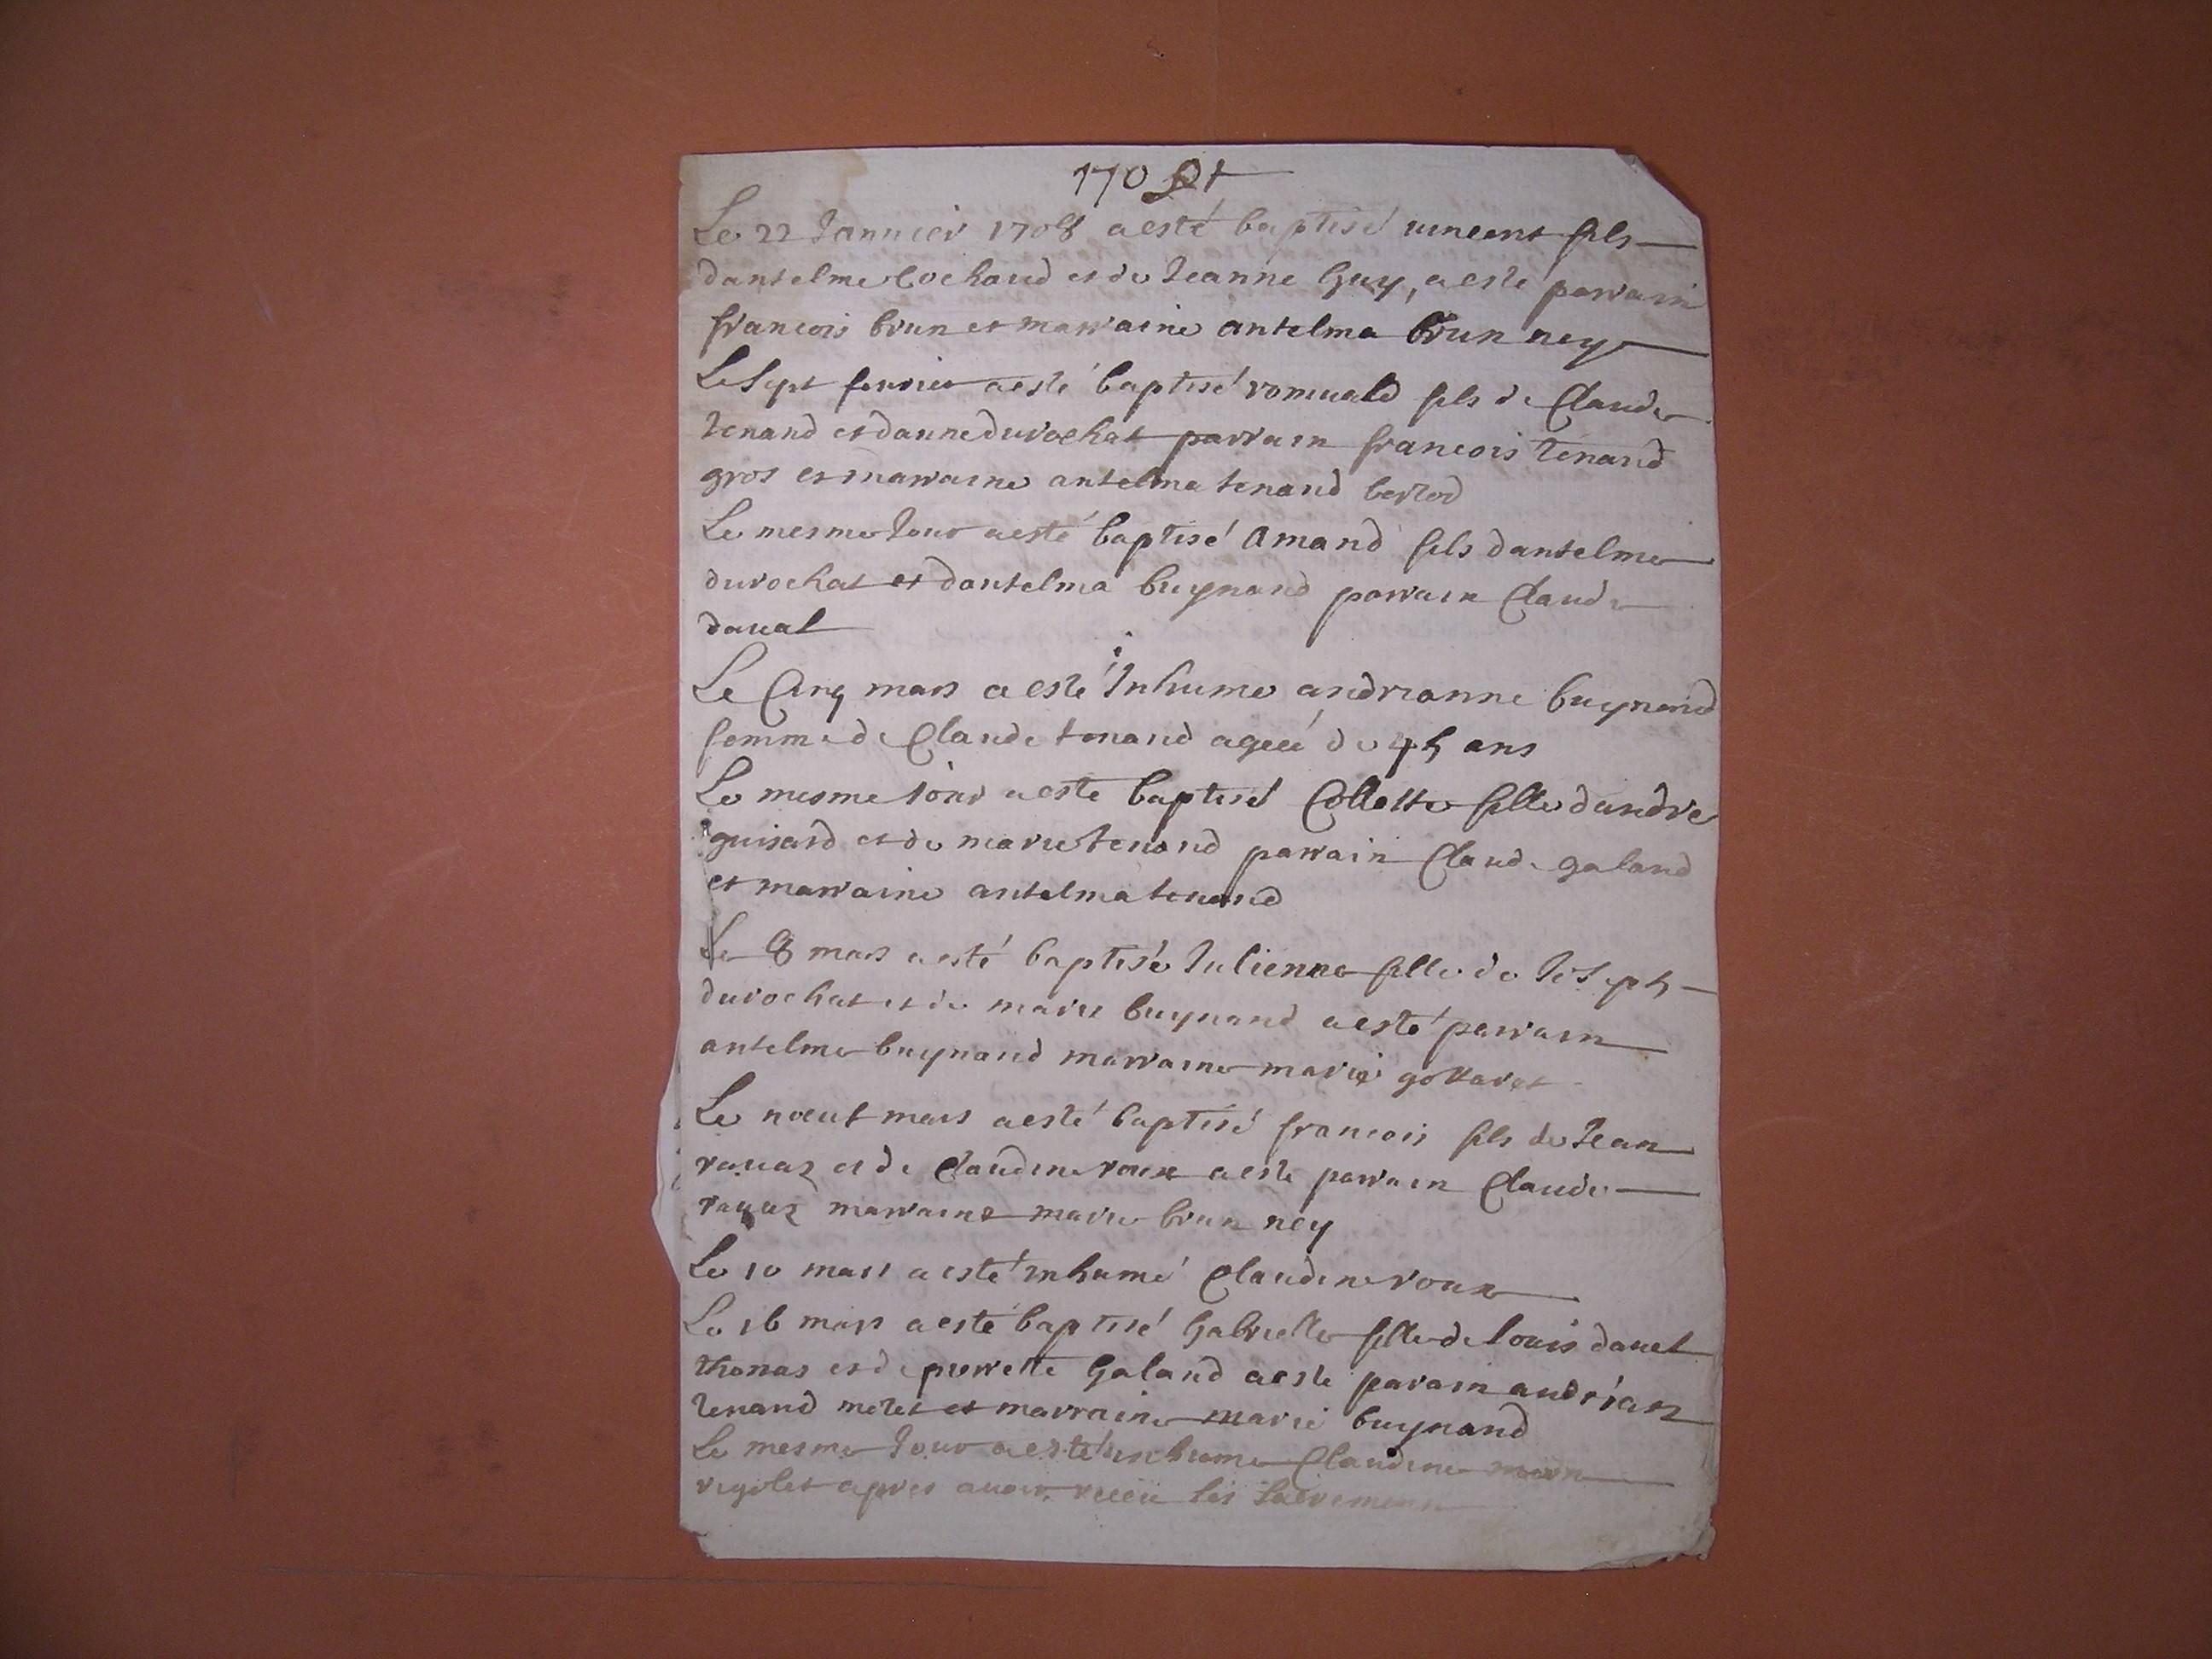 170
Le 22 Januier 1708 a esté baptisé uincent fils
dantelme Cochaud et de Jeanne Guy, a esté parrain
francois brun et marraine antelma brun ney
Le Sept feurier a esté baptisé romuald fils de Claude
tenand et danne durochat parrain francois tenand
gros et marraine antelma tenand berlod
Le mesme Jour a esté baptisé Amand fils dantelme
durochat et dantelma buynand parrain Claude
dauat
Le Cinq mars a esté Inhume andrianne buynand
femme de Claude tenand ageé de 45 ans
Le mesme iour a este baptisé Collette fille dandre
guisard et de marie tenand parrain Claude galand
et marraine antelma tenand
Le 8 mars a esté baptisée Julienne fille de JoSeph
durochat et de marie buynand a esté parrain
antelme buynand marraine marie gottaret
Le noeuf mars a esté baptisé francois fils de Jean
rauaz et de Claudine roux a este parrain Claude
rauaz marraine marie brun ney
Le 10 mars a esté inhumé Claudine roux
Le 16 mars a esté baptisé Gabrielle fille de louis dauet
thomas et de pierrette Galand a este parain andrian
tenand et marraine marie buynand
Le mesme Jour a esté inhume Claudine
rigolet apres auoir receu les Sacremens